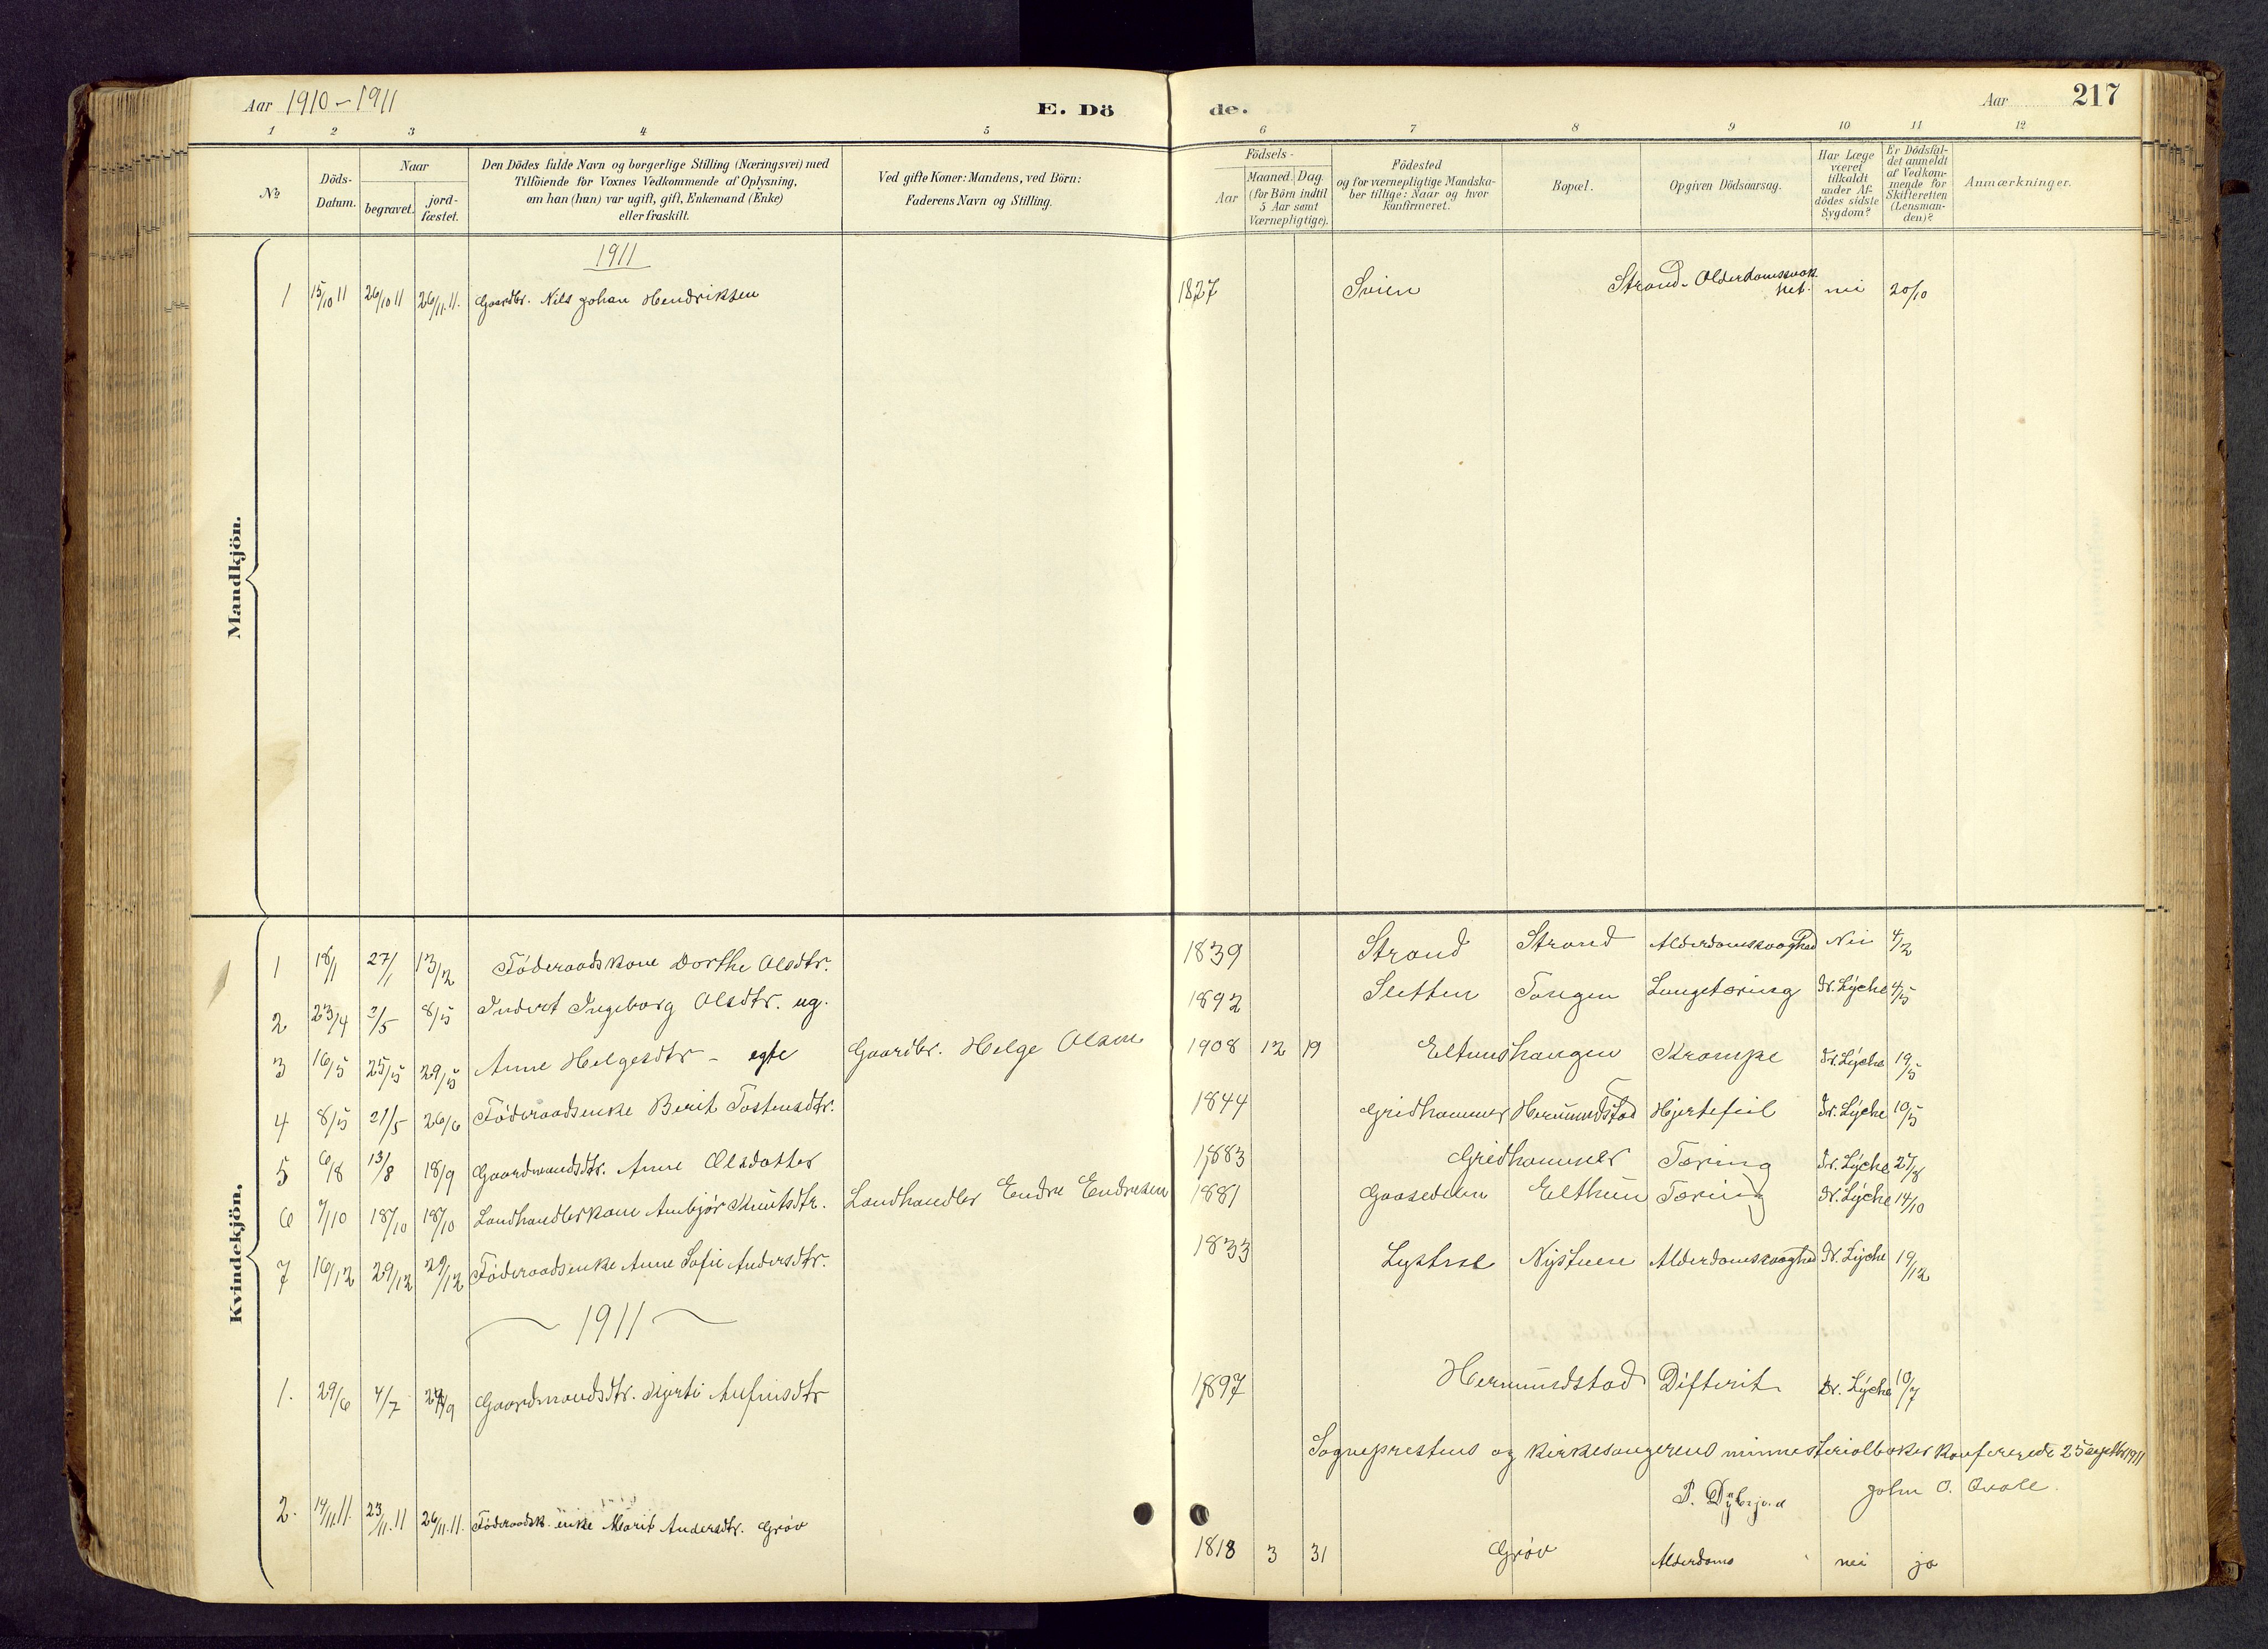 Aar 1910-1911 E. Dö de. Aar 217
1 2 3 4 5 6 7 8 9 10 11 12
№ Döds-Datum. Naar begravet. jordfæstet. Den Dödes fulde Navn og borgerlige Stilling (Næringsvei) med Tilföiende for Voxnes Vedkommende af Oplysning, om han (hun) var ugift, gift, Enkemand (Enke) eller fraskilt. Ved gifte Koner: Mandens, ved Börn: Faderens Navn og Stilling. Födsels- Aar Maaned. Dag. (for Börn indtil 5 Aar samt Værnepligtige). Födested og for værnepligtige Mandskaber tillige: Naar og hvor konfirmeret. Bopæl. Opgiven Dödsaarsag. Har Læge været tilkaldt under Afdödes sidste Sygdom? Er Dödsfaldet anmeldt af Vedkommende for Skifteretten (Lensmanden)? Anmærkninger.
Mandkjön.
1911
1 15/10 11 26/10 11 26/11.11. Gaardbr. Nils Johan Hendriksen 1827 Svien Strand - Alderdomssvakhet. nei 20/10
Kvindekjön.
1 18/1 27/1 13/2 Föderaadskone Dorthe Olsdtr. 1839 Strand Strand Alderdomssvaghed Nei 4/2
2 23/4 2/5 8/5 Inderst Ingeborg Olsdtr. ug. 1892 Sletten Tangen Lungetæring Dr. Lÿche 4/5
3 16/5 25/5 29/5 Anne Helgesdtr - egte Gaardbr. Helge Olsen 1908 12 19 Eltunshaugen Krampe Dr. Lÿche 19/5
4 8/5 21/5 26/6 Föderaadsenke Berit Tostensdtr. 1844 Gridhammer Hermundstad Hjertefeil Dr. Lÿche 10/5
5 6/8 13/8 18/9 Gaardmandsdtr. Anne Olsdatter 1883 Gridhammer Tæring Dr. Lÿche 27/8
6 7/10 18/10 18/10 Landhandlerkone Ambjør Knutsdtr. Landhandler Endre Endresen 1881 Gaasedelen Elthun Tæring Dr. Lÿche 14/10
7 16/12 29/12 29/12 Föderaadsenke Anne Sofie Andersdtr. 1833 Lystrse Nystuen Alderdomssvaghed Dr. Lÿche 19/12
1911
1. 29/6 4/7 24/9 Gaardmandsdtr. Kjerti Arfinsdtr 1897 Hermundstad Difterit Dr. Lÿche 10/7
Sogneprestens og kirkesangerens ministerialbøker konfererede 25 septbr 1911
John O. Qvale.
2. 14/11 11. 23/11.11 26/11.11. Föderaadsk. enke Marit Andersdtr. Grøv 1818 3 31 Grøv Alderdoms nei ja